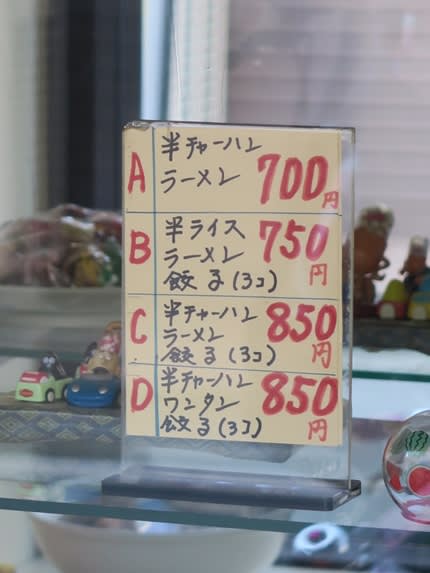 A 半チャーハン
ラーメン 700円
B 半ライス 750円
ラーメン
餃子(3コ)
C 半チャーハン 850円
ラーメン
餃子(3コ)
D 半チャーハン 850円
ワンタン
餃子(3コ)